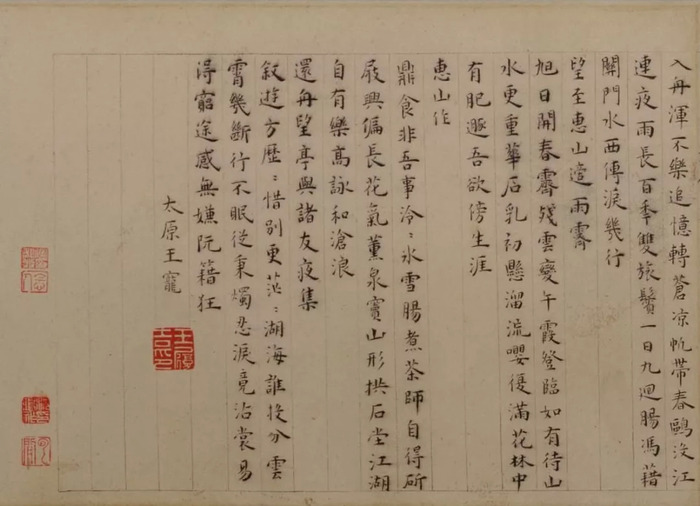 入舟渾不樂追憶轉蒼涼帆帶春鷗沒江
連夜雨長百秊雙旅鬢一日九迴腸馮藉
關門水西傳淚幾行
望至惠山雨霽
旭日開春霽殘雲變午霞登臨如有待山
水更重華石乳初懸溜流嚶復滿花林中
有肥遯吾欲傍生涯
惠山作
鼎食非吾事泠:冰雪腸煮茶師自得斫
屐興偏長花氣薰泉竇山形拱石堂江湖
自有樂高詠和滄浪
還舟望亭與諸友夜集
敘遊方歷:惜別更茫:湖海誰投分雲
霄幾斷行不眠從秉燭忍淚竟沾裳易
得窮途感無嫌阮籍狂
太原王寵
王履吉印